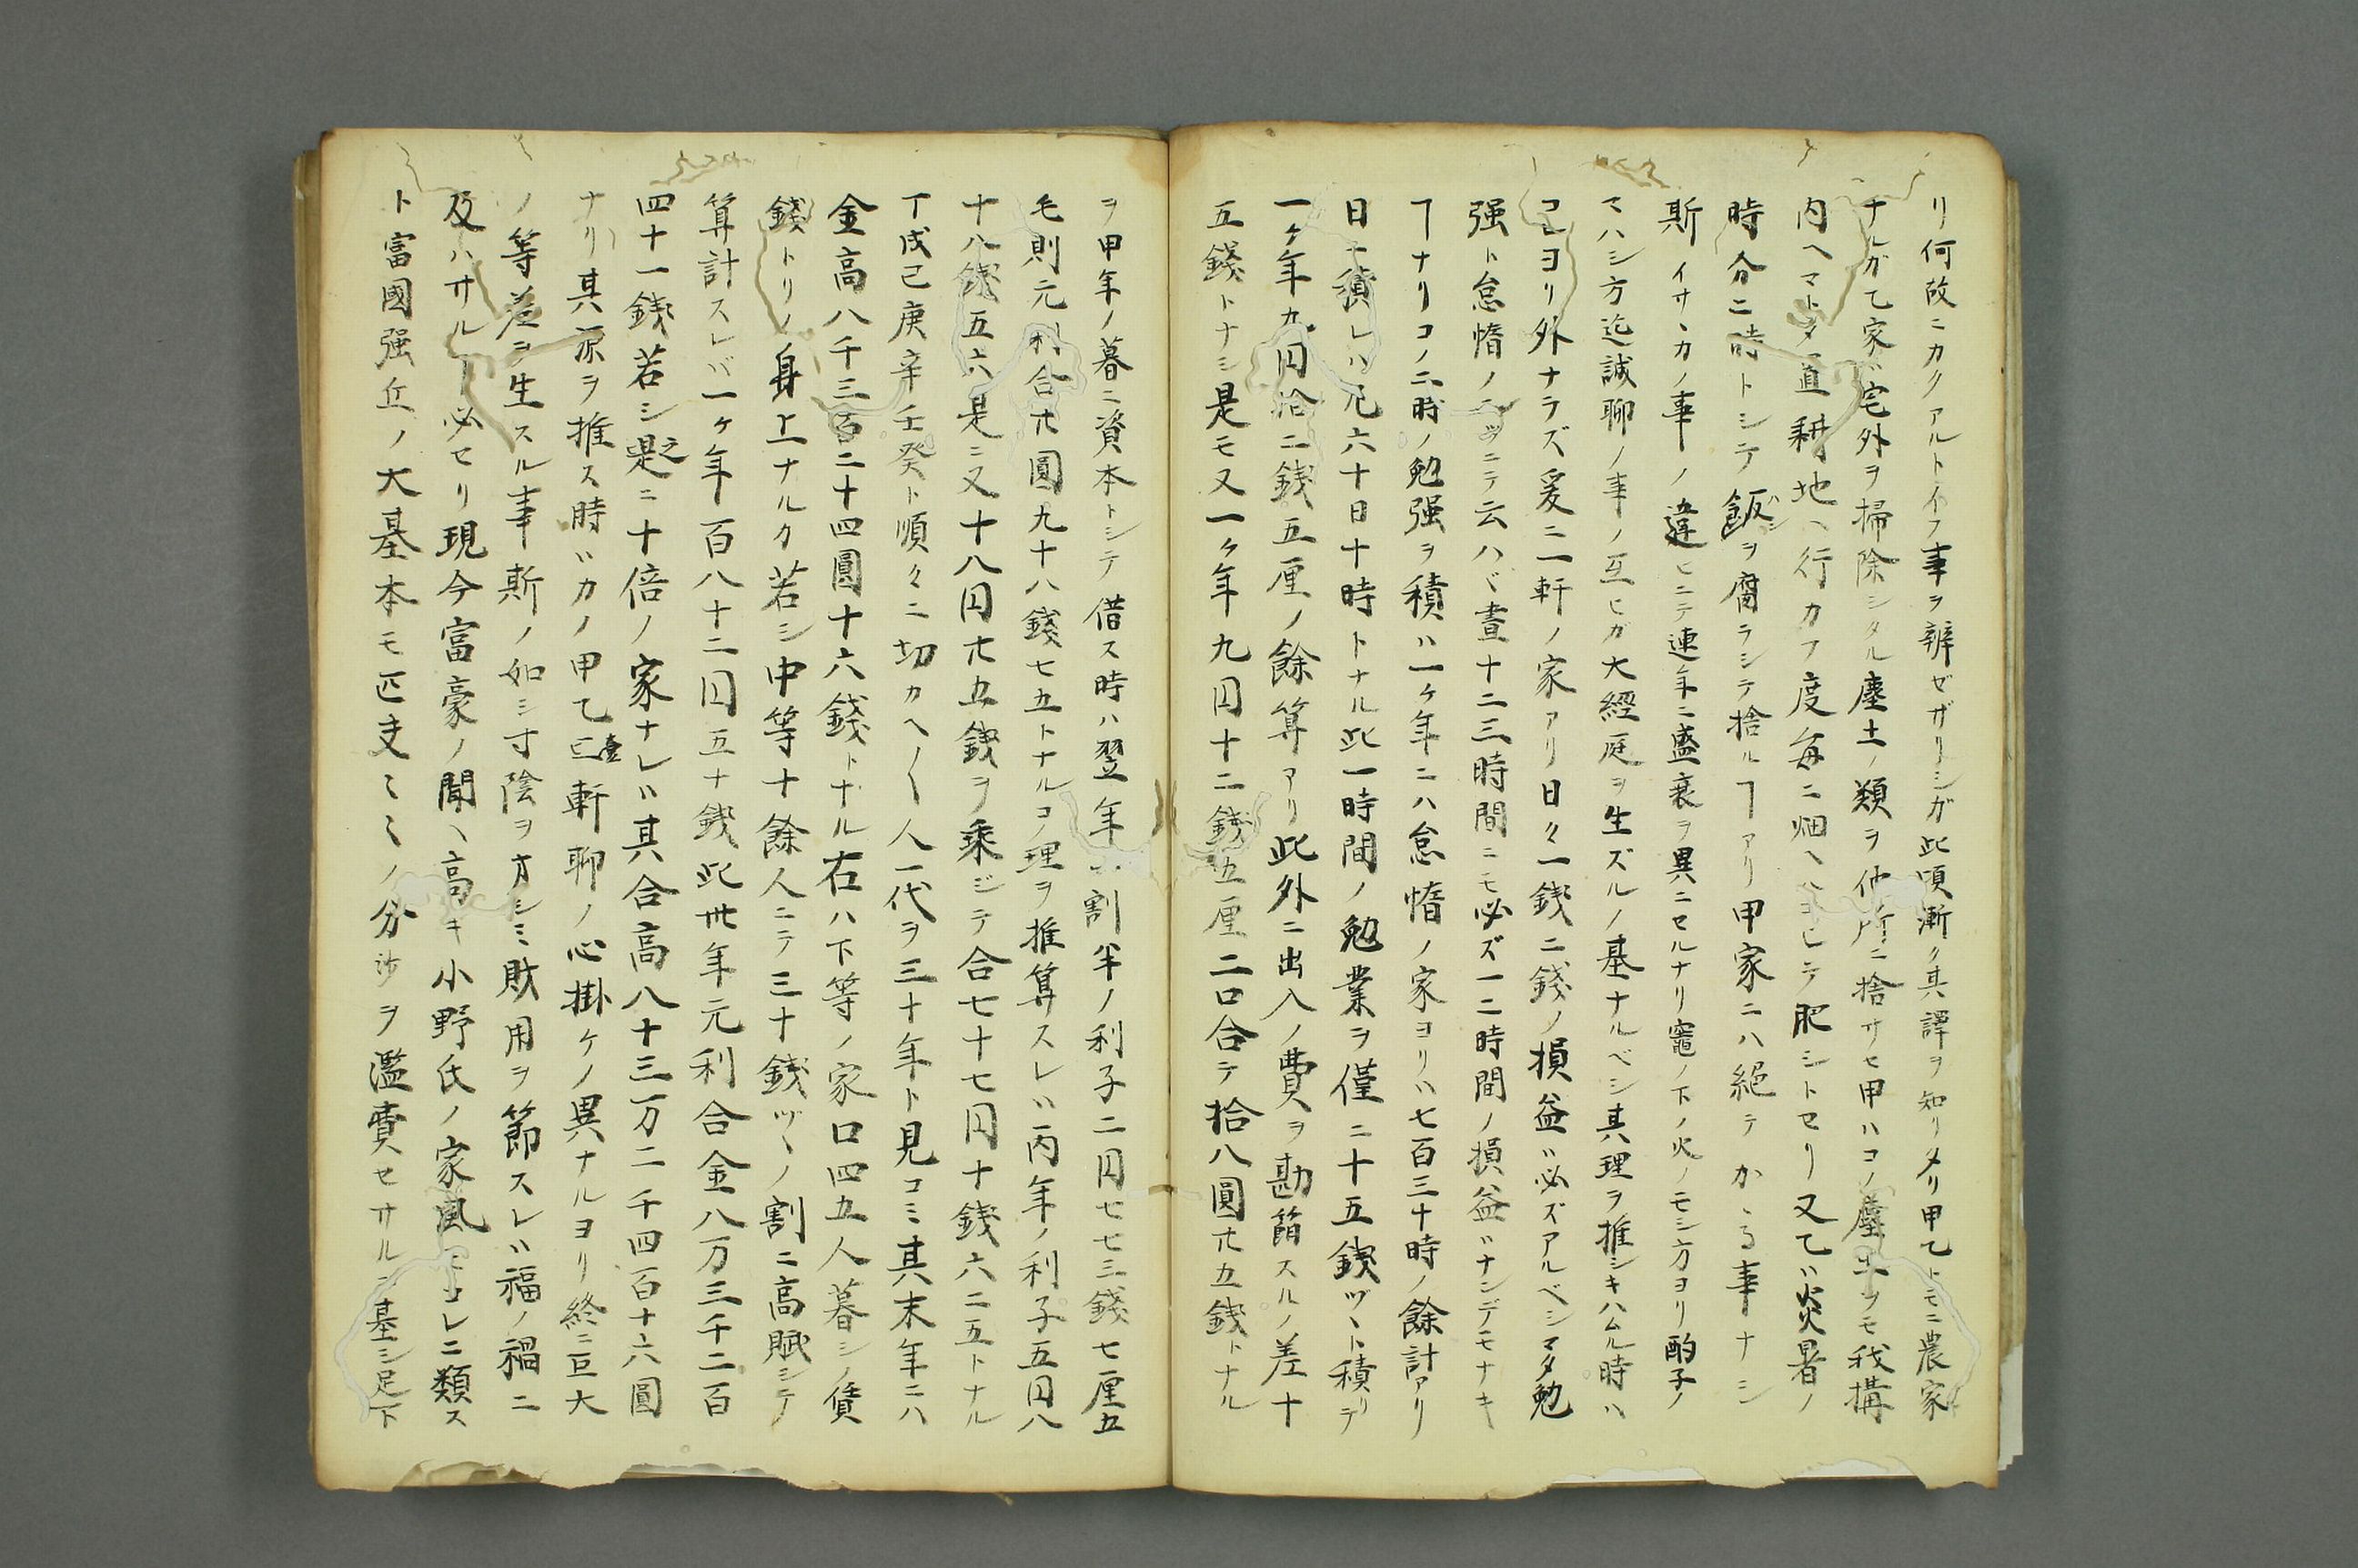 リ何故ニカクアルトイフ事ヲ辨ゼザリシガ此頃漸ク其譯ヲ知リタリ甲乙トモニ農家
ナルガ乙家ハ宅外ヲ掃除シタル塵土ノ類ヲ他所ニ捨サセ甲ハコノ塵土ヲモ我構
内ヘマトメ置耕地ヘ行カフ度毎ニ畑ヘハコビテ肥シトセリ又乙ハ炎暑ノ
時分ニ時トシテ飯ヲ腐ラシテ捨ルヿアリ甲家ニハ絶テかゝる事ナシ
斯イサヽカノ事ノ違ヒニテ連年ニ盛衰ヲ異ニセルナリ竈ノ下ノ火ノモシ方ヨリ酌子ノ
マハシ方迄誠聊ノ事ノ互ヒガ大經庭ヲ生ズルノ基ナルベシ其理ヲ推シキハムル時ハ
コレヨリ外ナラズ爰ニ二軒ノ家アリ日々一錢二錢ノ損益ハ必ズアルベシマタ勉
强ト怠惰ノ二ツニテ云ハヾ晝十二三時間ニモ必ズ一二時間ノ損益ハナンデモナキ
ヿナリコノ二時ノ勉强ヲ積ハ一ヶ年ニハ怠惰ノ家ヨリハ七百三十時ノ餘計アリ
日ニ積レハ凡六十日十時トナル此一時間ノ勉業ヲ僅二十五錢ヅヽト積リテ
一ヶ年九円拾二錢五厘ノ餘算アリ此外ニ出入ノ費ヲ勘節スルノ差十
五錢トナシ是モ又一ヶ年九円十二錢五厘二口合テ拾八圓廿五錢トナル
ヲ甲年ノ暮ニ資本トシテ借ス時ハ翌年ハ割半ノ利子二円七七三錢七厘五
毛則元利合廿圓九十八錢七五トナルコノ理ヲ推算スレハ丙年ノ利子五円八
十八錢五六是ニ又十八円廿五錢ヲ乘ジテ合七十七円十錢六二五トナル
丁戊己庚辛壬癸ト順々ニ切カヘ〱人一代ヲ三十年ト見コミ其末年ニハ
金高八千三百二十四圓十六錢トナル右ハ下等ノ家口四五人暮シノ賃
錢トリノ身上ナルカ若シ中等十餘人ニテ三十錢ヅヽノ割ニ高賦シテ
算計スレバ一ヶ年百八十二円五十錢此卅年元利合金八万三千二百
四十一錢若シ之是ニ十倍ノ家ナレハ其合高八十三万二千四百十六圓
ナリ其源ヲ推ス時ハカノ甲乙壹軒聊ノ心掛ケノ異ナルヨリ終ニ巨大
ノ等差ヲ生スル事斯ノ如シ寸陰ヲオシミ財用ヲ節スレハ福ノ福ニ
及ハサルヿ必セリ現今富豪ノ聞ヘ高キ小野氏ノ家風ヿコレニ類ス
ト富國强丘ノ大基本モ匹支ミミノ分沙ヲ濫費セサルニ基シ足下